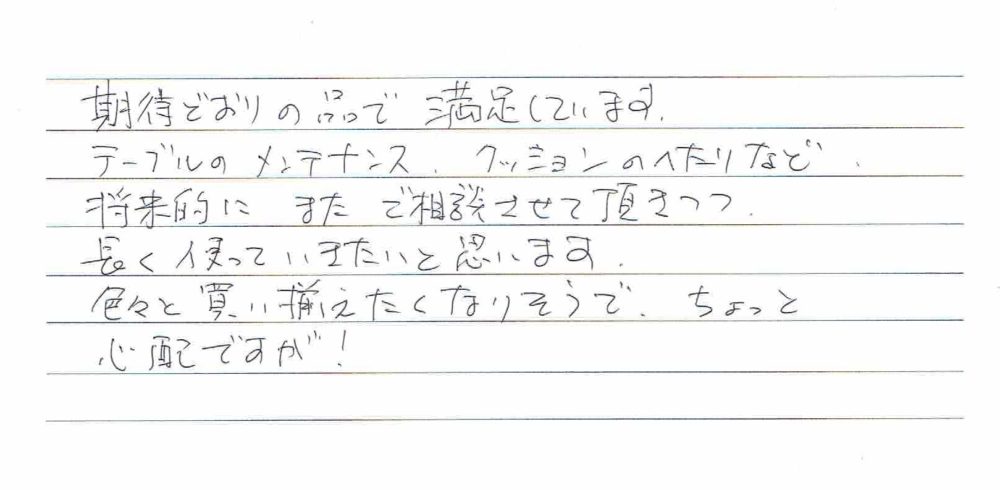 期待どおりの品で 満足しています.
テーブルのメンテナンス、クッションのへたりなど、
将来的に またご相談させて頂きつつ、
長く使っていきたいと思います.
色々と買い揃えたくなりそうで、ちょっと
心配ですが!